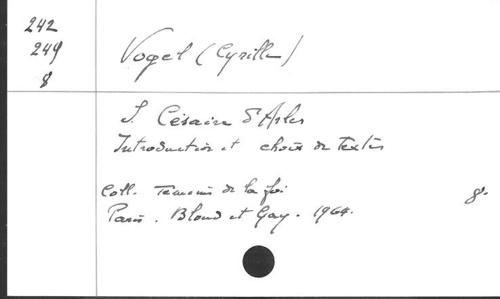 242
249
8
Vogel (Cyrille)
S. Césaire d'Arles
Introduction et choix de textes
Coll. Temoins de la foi
8°
Paris. Bloud et Gay. 1964.